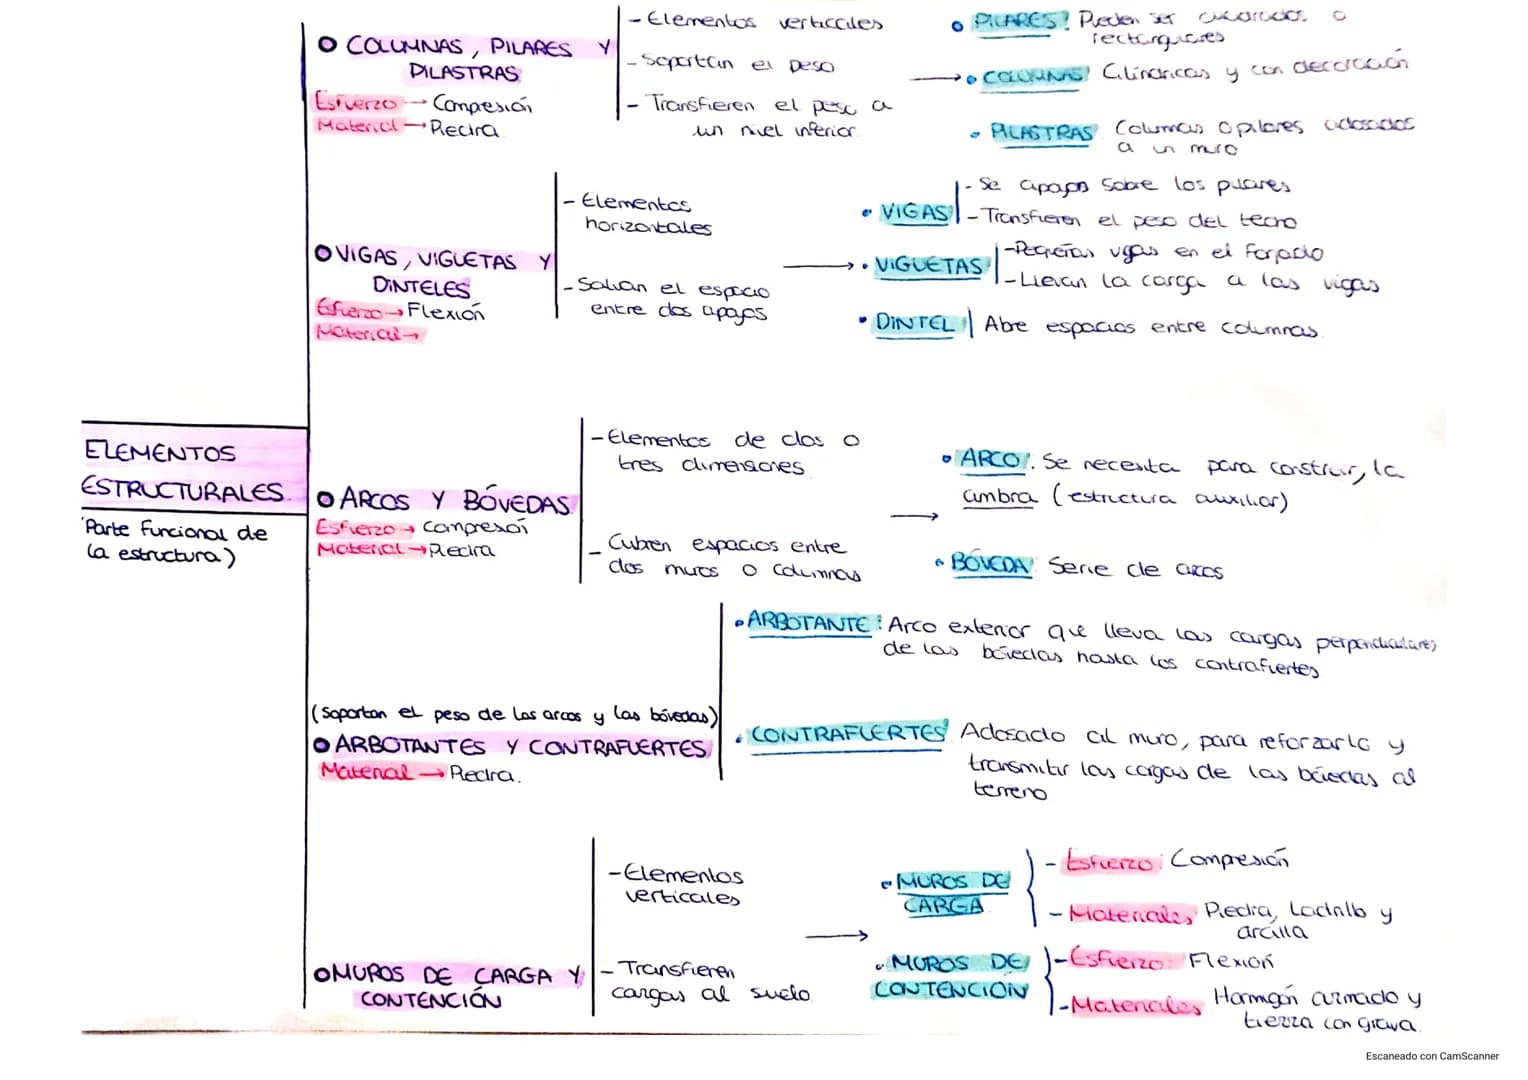 ○ COLUMNAS, PILARES Y
PILASTRAS
Esfuerzo → Compesión
Material → Piedra
- Elementos verticales
- Soportan el peso
- Transfieren el peso a
un nivel inferior
• PILARES: Pueden ser cuadrados o
rectangulares
→ • COLUMNAS: Cilíndricas y con decoración
• PILASTRAS: Columnas o pilares adosados
a un muro
○ VIGAS, VIGUETAS Y
DINTELES
Esfuerzo → Flexión
Material →
- Elementos
horizontales
- Salvan el espacio
entre dos apoyos
→
• VIGAS
- Se apoyan sobre los pilares
- Transfieren el peso del techo
• VIGUETAS
- Pequeñas vigas en el forjado
- Llevan la carga a las vigas
• DINTEL | Abre espacios entre columnas
ELEMENTOS
ESTRUCTURALES
(Parte funcional de
la estructura)
○ ARCOS Y BÓVEDAS
Esfuerzo → Compresoí
Material → Piedra
- Elementos de dos o
tres dimensiones
- Cubren espacios entre
dos muros o columnas
→
• ARCO: Se necesita para construir, la
cimbra (estructura auxiliar)
• BÓVEDA: Serie de arcos
(Soportan el peso de los arcos y las bóvedas)
○ ARBOTANTES Y CONTRAFUERTES
Material → Piedra.
• ARBOTANTE: Arco exterior que lleva las cargas perpendiculares
de las bóvedas hasta los contrafuertes
• CONTRAFUERTES: Adosado al muro, para reforzarlo y
transmitir las cargas de las bóvedas al
terreno
○ MUROS DE CARGA Y
CONTENCIÓN
- Elementos
verticales
- Transfieren
cargas al suelo
→
• MUROS DE
CARGA
- Esfuerzo: Compresión
- Materiales: Piedra, Ladrillo y
arcilla
• MUROS DE
CONTENCIÓN
- Esfuerzo: Flexión
- Materiales: Hormigón armado y
tierra con grava.
Escaneado con CamScanner